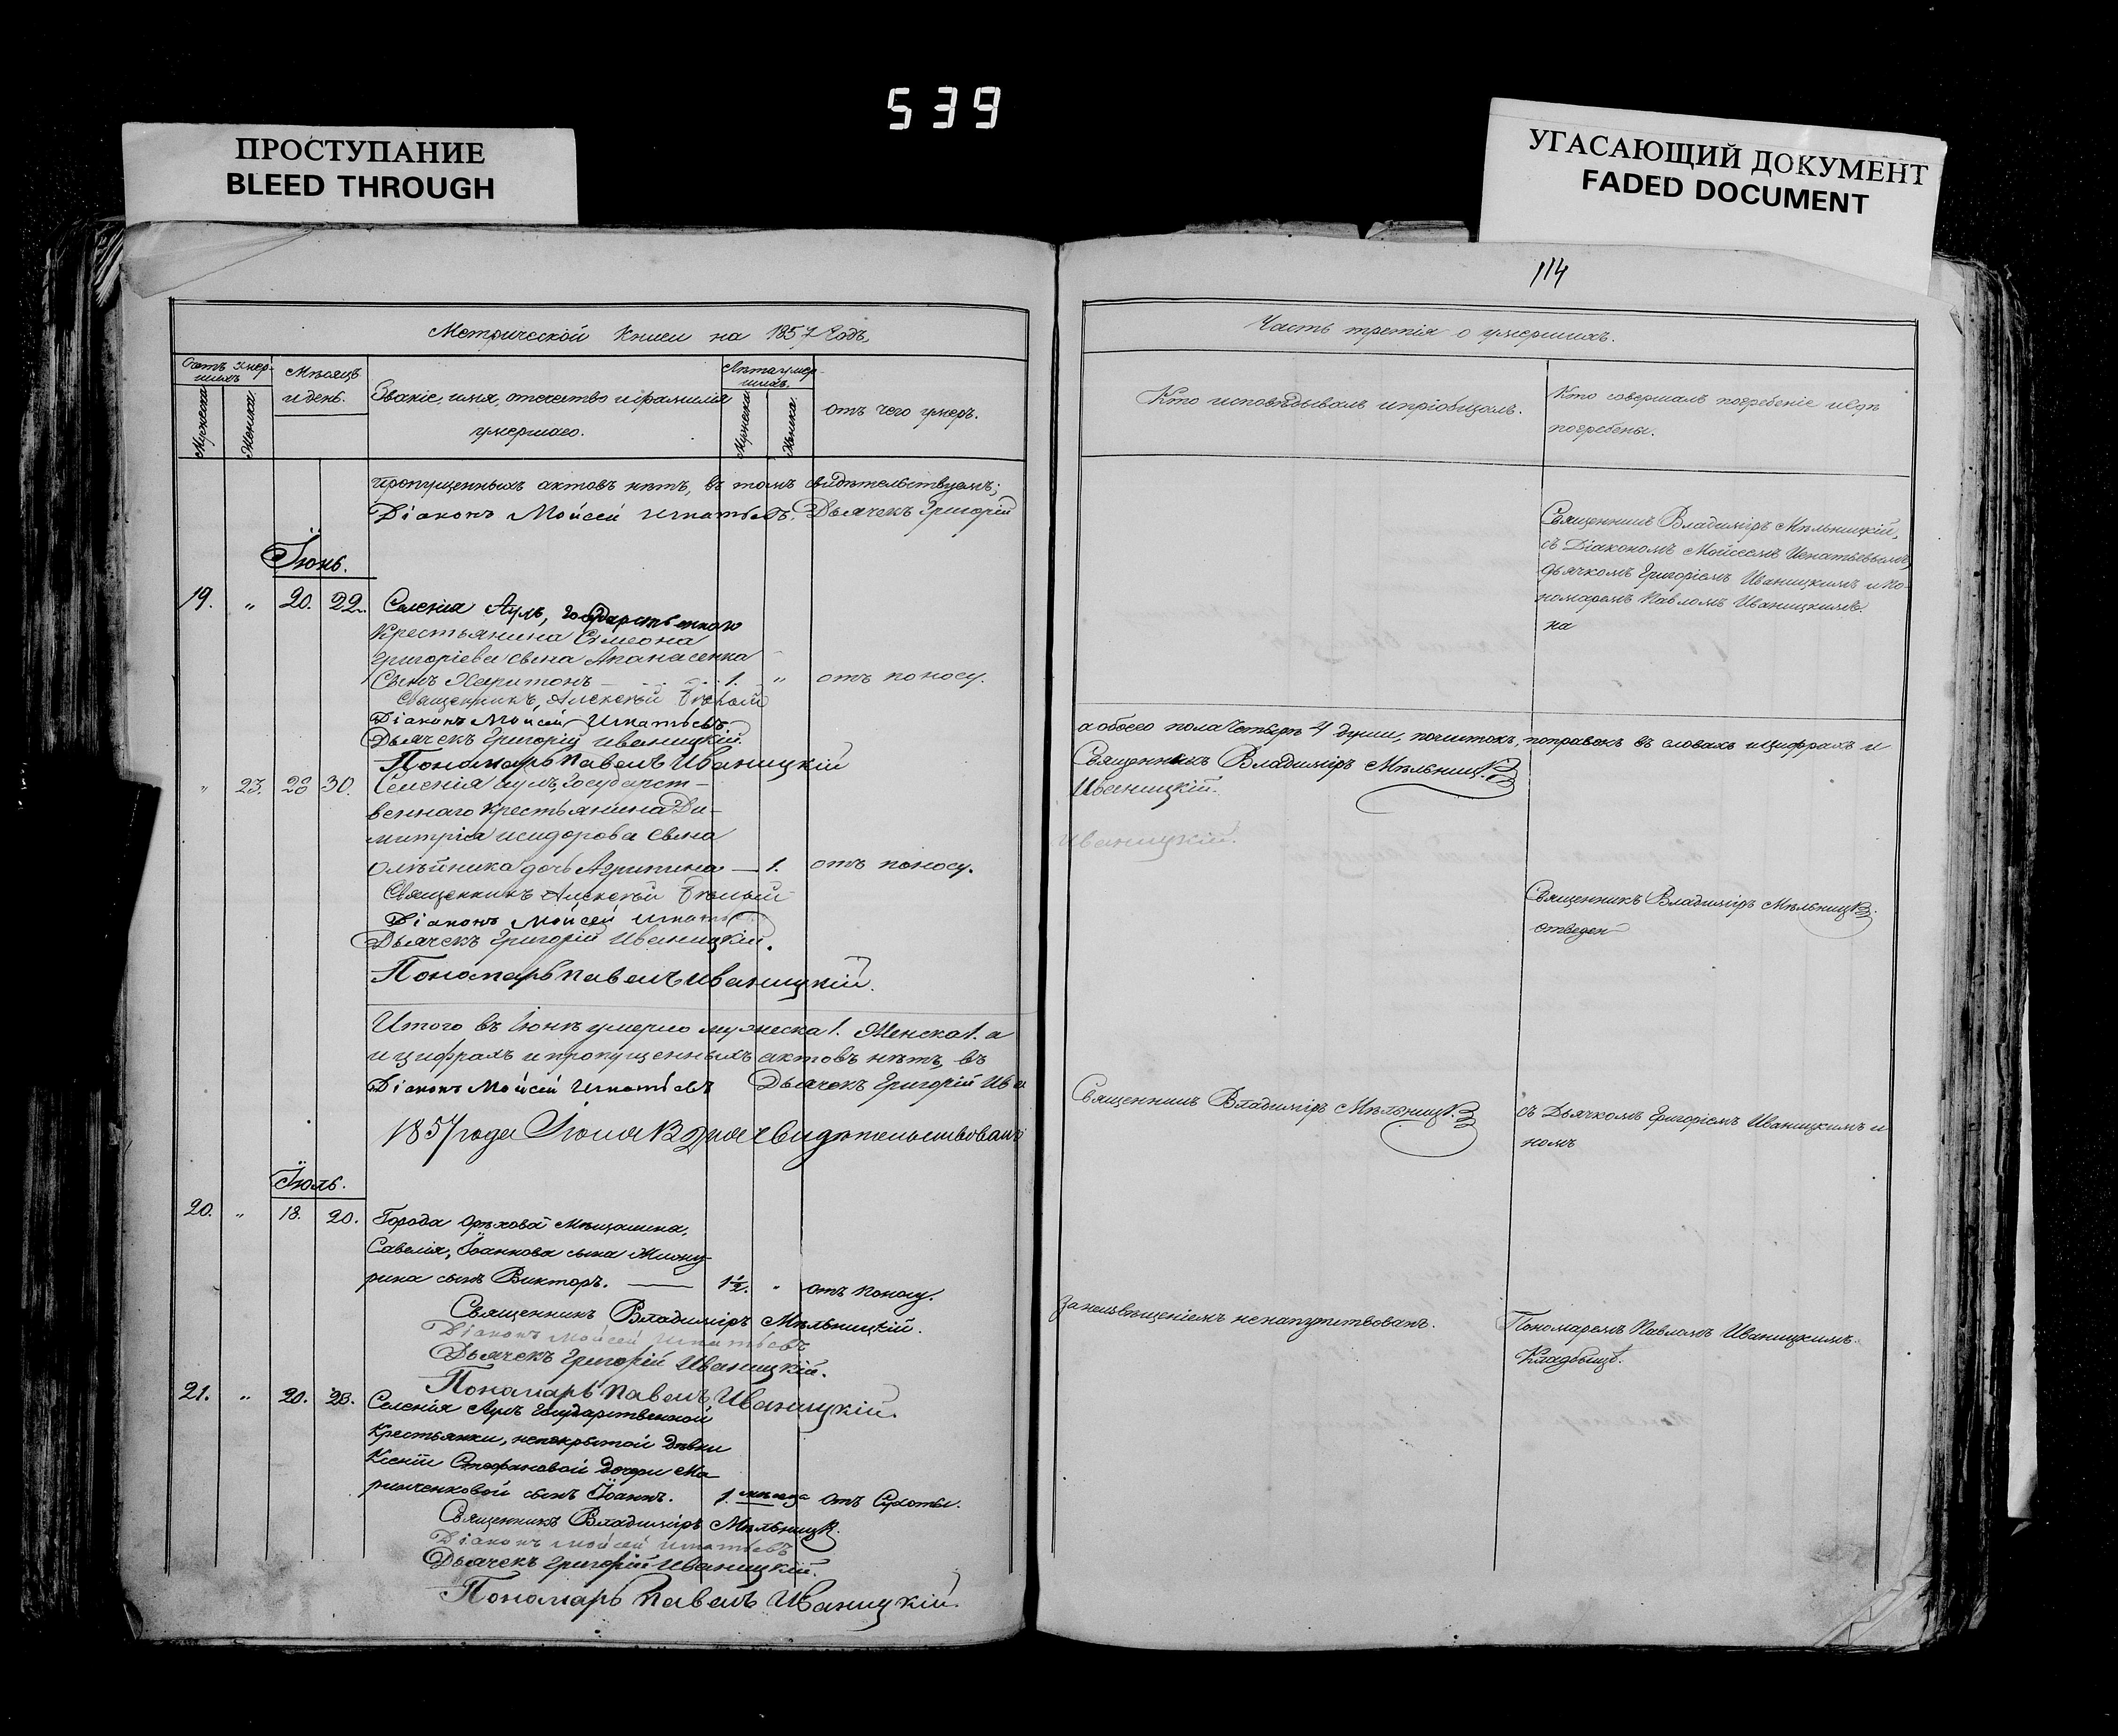 539
ПРОСТУПАНИЕ
BLEED THROUGH
УГАСАЮЩИЙ ДОКУМЕНТ
FADED DOCUMENT
Метрической Книги на 1857 Годъ,
Счетъ умер-
шихъ
Мужеска
Женска.
Мѣсяцъ
и день.
Званіе, имя, отечество и фамилія
умершаго.
Лѣта умер-
шихъ.
Мужеска.
Женска.
отъ чего умеръ.
пропущенныхъ актовъ нѣтъ, въ томъ свидѣтельствуемъ;
Діаконъ Мойсей Игнатьевъ. Дьячекъ Григорій
Іюнь.
19. „ 20. 22. Селенія Аулъ, государственного
Крестьянина Симеона
Григоріева сына Апанасенка
Сынъ Харитонъ 1. „ отъ поносу.
Священникъ, Алексѣй Бѣлый
Діаконъ Мойсей Игнатьевъ
Дьячекъ Григорій Иваницкій.
Пономарь Павелъ Иваницкій
„ 23. 28 30. Селенія Аулъ, Государст-
веннаго Крестьянина Ди-
митрія Исидорова Сына
Олѣйника дочь Агрипина — 1. отъ поносу.
Священникъ Алексѣй Бѣлый
Діаконъ Мойсей
Дьячекъ Григорій Иваницкій.
Пономарь Павелъ Иваницкій.
Итого въ Іюнѣ умерло мужеска 1. Женска 1. а
и цифрахъ и пропущенныхъ актовъ нѣтъ, въ
Діаконъ Мойсей Игнатьевъ Дьячекъ Григорій Ива
1857 года Іюля
Іюль.
20. „ 18. 20. Города Орѣхова Мѣщанина,
Савелія, Іоаннова сына
рина сынъ Викторъ. — 1½. „ отъ поносу.
Священникъ Владиміръ Мѣльницкій.
Діаконъ Мойсей Игнатьевъ
Дьячекъ Григорій Иваницкій.
Пономарь Павелъ Иваницкій.
21. „ 20. 23. Селенія Аулъ Государственной
Крестьянки, непокрытой дѣвки
Ксеніи Стефановой дочери Ма-
ринченковой сынъ Іоаннъ. 1. мѣсяца отъ Сухоты.
Священникъ Владиміръ
Діаконъ Мойсей Игнатьевъ
Дьячекъ Григорій Иваницкій.
Пономарь Павелъ Иваницкій.
114
Часть третія о умершихъ.
Кто исповѣдывалъ и пріобщалъ.
Кто совершалъ погребеніе и гдѣ
погребены.
Священникъ Владиміръ Мѣльницкій,
съ Діакономъ Мойсеемъ Игнатьевымъ,
дьячкомъ Григоріемъ Иваницкимъ и по-
номаремъ Павломъ Иваницкимъ.
на
а обоего пола Четверъ 4 души, почистокъ, поправокъ въ словахъ и цифрахъ и
Священникъ Владиміръ
Иваницкій.
Иваницкій.
Священникъ Владиміръ
отведен
Священникъ Владиміръ
съ Дьячкомъ Григоріемъ Иваницкимъ и
номъ
ненапутствованъ.
Пономаремъ Павломъ Иваницкимъ.
Кладбищѣ.